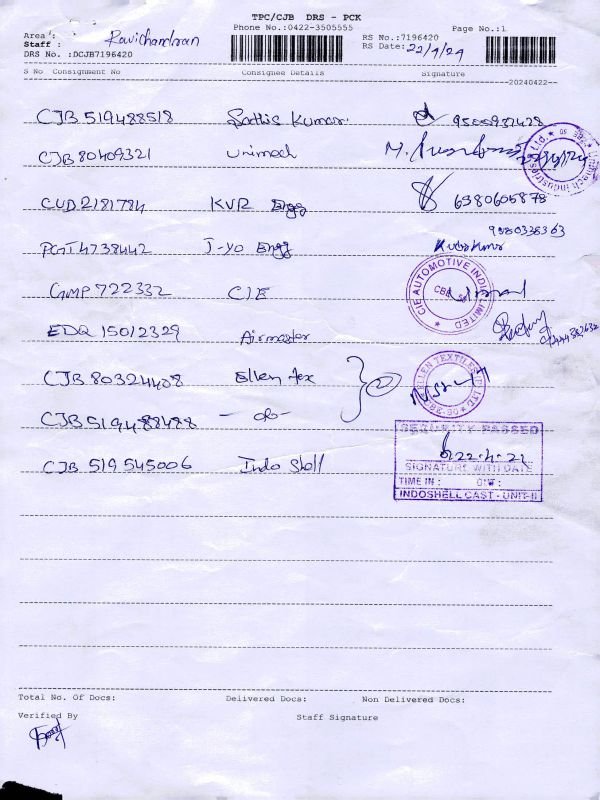 TPC/CJB DRS - PCK
Phone No.:0422-3505555
Page No.:1
Area :
Staff : Ravichandran
RS No.:7196420
RS Date: 22/4/24
DRS No. :DCJB7196420
S No Consignment No Consignee Details Signature
20240422
CJB 519488518 Sathis Kumar
CJB 80409321 Unimech
CUD 2181784 KVR Engg 6380605878
PGT 4738442 J-yo Engg
GMP 722332 CIE
CIE AUTOMOTIVE INDIA LIMITED
EDQ 15012329 Airmaster
CJB 80324408 Ellen Tex 2
ELLEN TEXTILES (P) LTD.
CJB 519488488 - do -
SECURITY PASSED
22.4.22
SIGNATURE WITH DATE
TIME IN :
INDOSHELL CAST - UNIT-II
CJB 519545006 Indo Shell
Total No. Of Docs: Delivered Docs: Non Delivered Docs:
Verified By Staff Signature